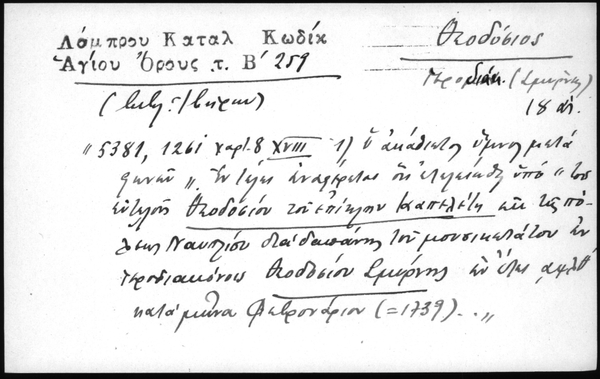 Λάμπρου Καταλ Κωδίκ
Ἁγίου Ὄρους τ. Β' 259
Θεοδόσιος
Ἱεροδιάκ. (Σμύρνης)
18 αἰ.
(Ἰβήρων)
„5381, 1261 χαρτ. 8 XVIII 1) Ὁ ἀκάθιστος ὕμνος μετὰ
φωνῶν „. Ἐν τέλει ἀναφέρεται ὅτι ἐτελειώθη ὑπὸ „ τοῦ
εὐτελοῦς Θεοδοσίου τοὐπίκλην Καπελέτη ἐκ τῆς πό-
λεως Ναυπλίου διὰ δαπάνης τοῦ μουσικωτάτου ἐν
ἱεροδιακόνοις Θεοδοσίου Σμύρνης ἐν ἔτει αψλθ'
κατὰ μῆνα Φεβρουάριον (=1739). .„